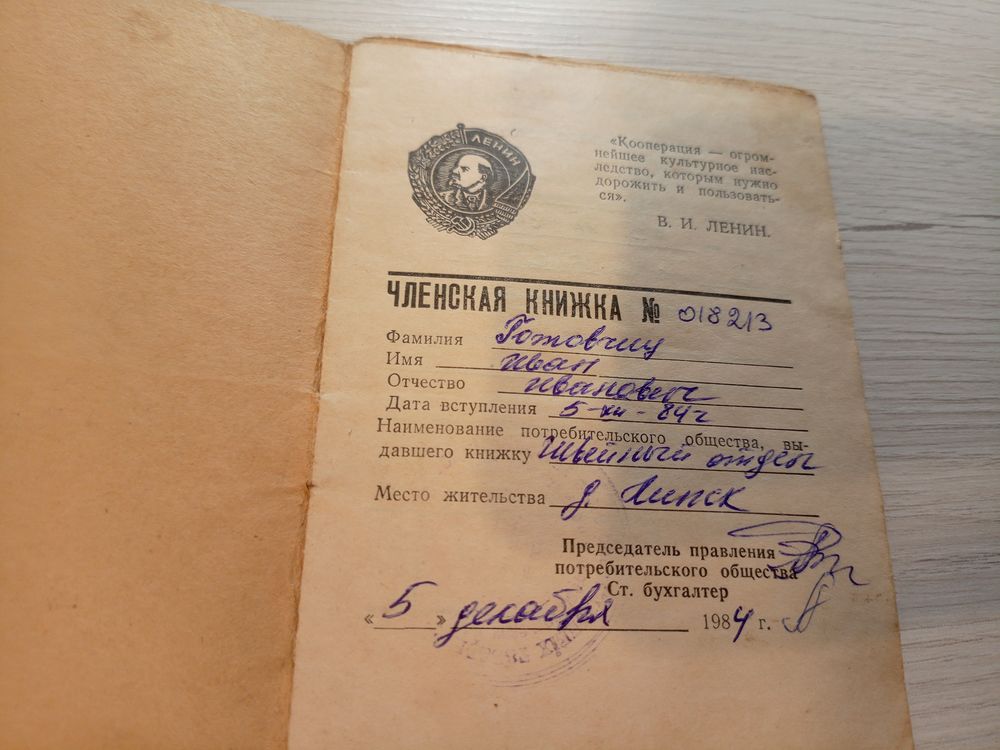 ЛЕНИН
«Кооперация — огром-
нейшее культурное нас-
ледство, которым нужно
дорожить и пользовать-
ся».
В. И. ЛЕНИН.
ЧЛЕНСКАЯ КНИЖКА № 018213
Фамилия Готовчиц
Имя Иван
Отчество Иванович
Дата вступления 5-XII-84г
Наименование потребительского общества, вы-
давшего книжку Швейный отдел
Место жительства д. Липск
Председатель правления
потребительского общества
Ст. бухгалтер
«5» декабря 1984 г.